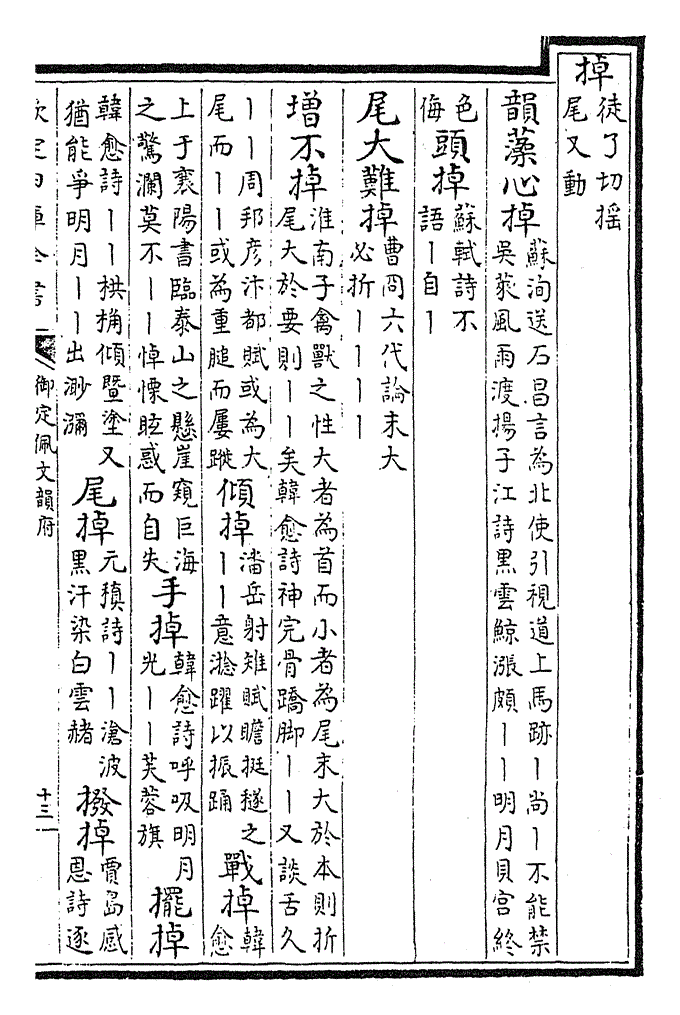 掉徒了切揺尾又動
韻藻心掉蘇洵送石昌言為北使引視道上馬跡丨尚丨不能禁吳萊風雨渡揚子江詩黒雲鯨漲頗丨丨明月貝宫終
色侮頭掉蘇軾詩不語丨自丨
尾大難掉曹冏六代論末大必折丨丨丨丨
増不掉淮南子禽獸之性大者為首而小者為尾末大於本則折尾大於要則丨丨矣韓愈詩神完骨蹻脚丨丨又談舌久
丨丨周邦彦汴都賦或為大尾而丨丨或為重膇而屢蹤傾掉潘岳射雉賦瞻挺穟之丨丨意淰躍以振踊戰掉韓愈
上于襄陽書臨泰山之懸崖窺巨海之驚瀾莫不丨丨悼慄眩惑而自失手掉韓愈詩呼吸明月光丨丨芙蓉旗擺掉
韓愈詩丨丨栱桷傾曁塗又猶能爭明月丨丨出渺瀰尾掉元稹詩丨丨滄波黒汗染白雲赭撥掉賈島感恩詩逐
欽定四庫全書 御定佩文韻府 十三